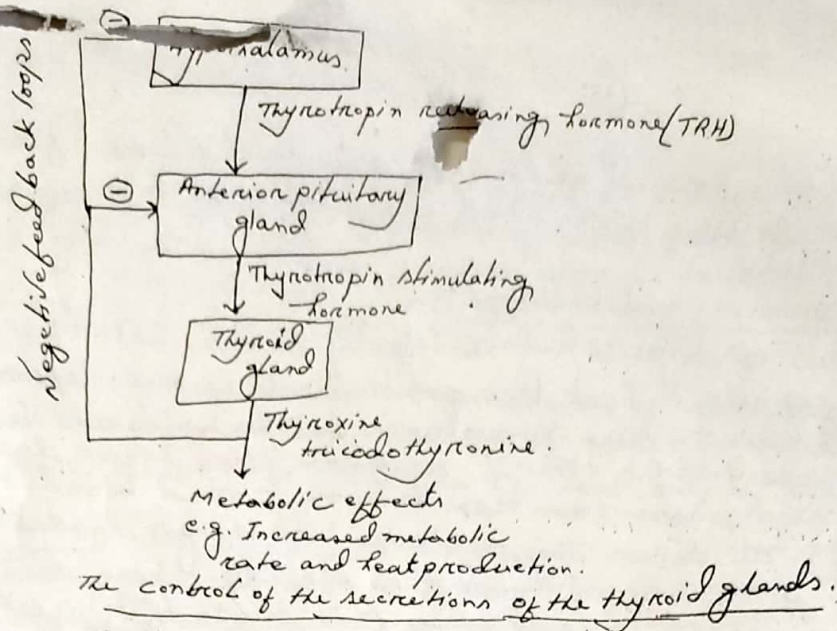 Negetive feed back loops
⊖
Hypothalamus.
Thyrotropin releasing hormone (TRH)
⊖
Anterior pituitary
gland
Thyrotropin stimulating
hormone
Thyroid
gland
Thyroxine
triiodothyronine.
Metabolic effects
e.g. Increased metabolic
rate and heat production.
The control of the secretions of the thyroid glands.